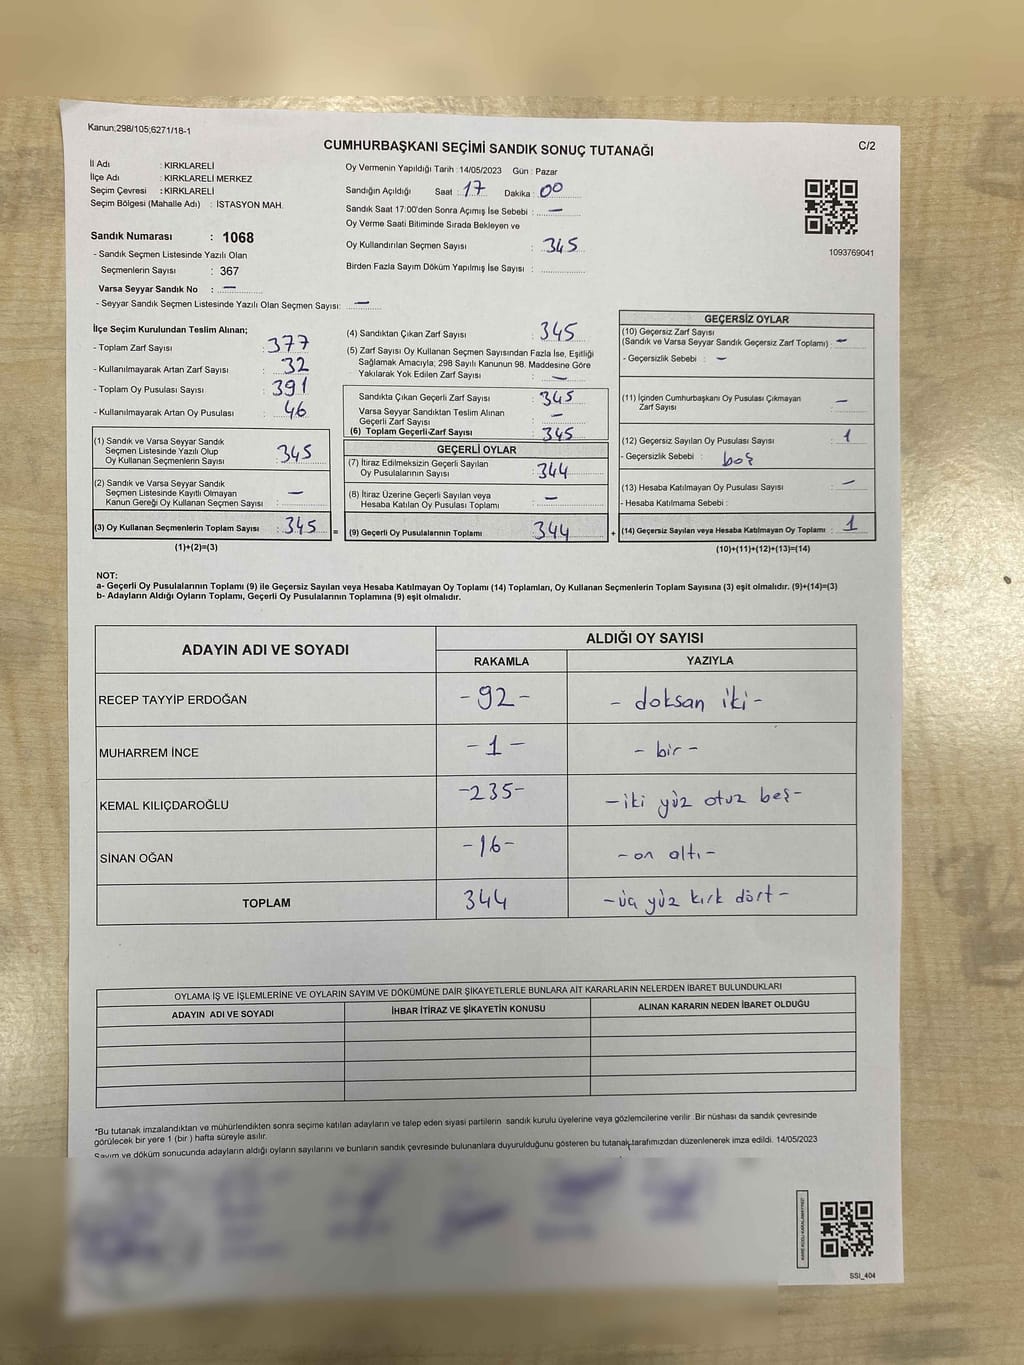 Kanun;298/105;6271/18-1
C/2
CUMHURBAŞKANI SEÇİMİ SANDIK SONUÇ TUTANAĞI
İl Adı : KIRKLARELİ
İlçe Adı : KIRKLARELİ MERKEZ
Seçim Çevresi : KIRKLARELİ
Seçim Bölgesi (Mahalle Adı) : İSTASYON MAH.
Oy Vermenin Yapıldığı Tarih : 14/05/2023 Gün : Pazar
Sandığın Açıldığı Saat : 17 Dakika : 00
Sandık Saat 17:00'den Sonra Açımış İse Sebebi : —
Oy Verme Saati Bitiminde Sırada Bekleyen ve
Oy Kullandırılan Seçmen Sayısı : 345
Birden Fazla Sayım Döküm Yapılmış İse Sayısı :
1093769041
Sandık Numarası : 1068
- Sandık Seçmen Listesinde Yazılı Olan
Seçmenlerin Sayısı : 367
Varsa Seyyar Sandık No : —
- Seyyar Sandık Seçmen Listesinde Yazılı Olan Seçmen Sayısı: —
İlçe Seçim Kurulundan Teslim Alınan;
- Toplam Zarf Sayısı : 377
- Kullanılmayarak Artan Zarf Sayısı : 32
- Toplam Oy Pusulası Sayısı : 391
- Kullanılmayarak Artan Oy Pusulası : 46
(1) Sandık ve Varsa Seyyar Sandık
Seçmen Listesinde Yazılı Olup
Oy Kullanan Seçmenlerin Sayısı : 345
(2) Sandık ve Varsa Seyyar Sandık
Seçmen Listesinde Kayıtlı Olmayan
Kanun Gereği Oy Kullanan Seçmen Sayısı : —
(3) Oy Kullanan Seçmenlerin Toplam Sayısı : 345 =
(1)+(2)=(3)
(4) Sandıktan Çıkan Zarf Sayısı : 345
(5) Zarf Sayısı Oy Kullanan Seçmen Sayısından Fazla İse, Eşitliği
Sağlamak Amacıyla; 298 Sayılı Kanunun 98. Maddesine Göre
Yakılarak Yok Edilen Zarf Sayısı : —
Sandıkta Çıkan Geçerli Zarf Sayısı : 345
Varsa Seyyar Sandıktan Teslim Alınan
Geçerli Zarf Sayısı : —
(6) Toplam Geçerli-Zarf Sayısı : 345
GEÇERLİ OYLAR
(7) İtiraz Edilmeksizin Geçerli Sayılan
Oy Pusulalarının Sayısı : 344
(8) İtiraz Üzerine Geçerli Sayılan veya
Hesaba Katılan Oy Pusulası Toplamı : —
(9) Geçerli Oy Pusulalarının Toplamı : 344 +
GEÇERSİZ OYLAR
(10) Geçersiz Zarf Sayısı
(Sandık ve Varsa Seyyar Sandık Geçersiz Zarf Toplamı) : —
- Geçersizlik Sebebi : —
(11) İçinden Cumhurbaşkanı Oy Pusulası Çıkmayan
Zarf Sayısı : —
(12) Geçersiz Sayılan Oy Pusulası Sayısı : 1
- Geçersizlik Sebebi : boş
(13) Hesaba Katılmayan Oy Pusulası Sayısı : —
- Hesaba Katılmama Sebebi :
(14) Geçersiz Sayılan veya Hesaba Katılmayan Oy Toplamı : 1
(10)+(11)+(12)+(13)=(14)
NOT:
a- Geçerli Oy Pusulalarının Toplamı (9) ile Geçersiz Sayılan veya Hesaba Katılmayan Oy Toplamı (14) Toplamları, Oy Kullanan Seçmenlerin Toplam Sayısına (3) eşit olmalıdır. (9)+(14)=(3)
b- Adayların Aldığı Oyların Toplamı, Geçerli Oy Pusulalarının Toplamına (9) eşit olmalıdır.
ADAYIN ADI VE SOYADI
ALDIĞI OY SAYISI
RAKAMLA YAZIYLA
RECEP TAYYİP ERDOĞAN -92- - doksan iki -
MUHARREM İNCE -1- - bir -
KEMAL KILIÇDAROĞLU -235- -iki yüz otuz beş-
SİNAN OĞAN -16- -on altı-
TOPLAM 344 -üç yüz kırk dört-
OYLAMA İŞ VE İŞLEMLERİNE VE OYLARIN SAYIM VE DÖKÜMÜNE DAİR ŞİKAYETLERLE BUNLARA AİT KARARLARIN NELERDEN İBARET BULUNDUKLARI
ADAYIN ADI VE SOYADI İHBAR İTİRAZ VE ŞİKAYETİN KONUSU ALINAN KARARIN NEDEN İBARET OLDUĞU
*Bu tutanak imzalandıktan ve mühürlendikten sonra seçime katılan adayların ve talep eden siyasi partilerin sandık kurulu üyelerine veya gözlemcilerine verilir .Bir nüshası da sandık çevresinde
görülecek bir yere 1 (bir ) hafta süreyle asılır.
Sayım ve döküm sonucunda adayların aldığı oyların sayılarını ve bunların sandık çevresinde bulunanlara duyurulduğunu gösteren bu tutanak tarafımızdan düzenlenerek imza edildi. 14/05/2023
SSI_404